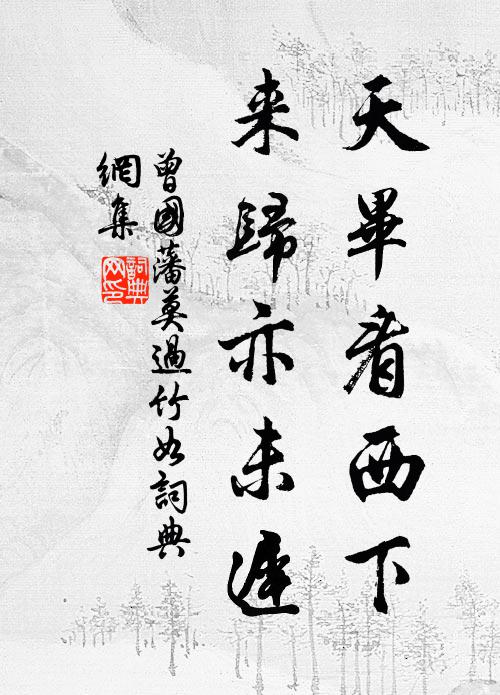 天畢看西下
来歸亦未遲
曾國藩莫過竹如詞典
網集
詞典
网印